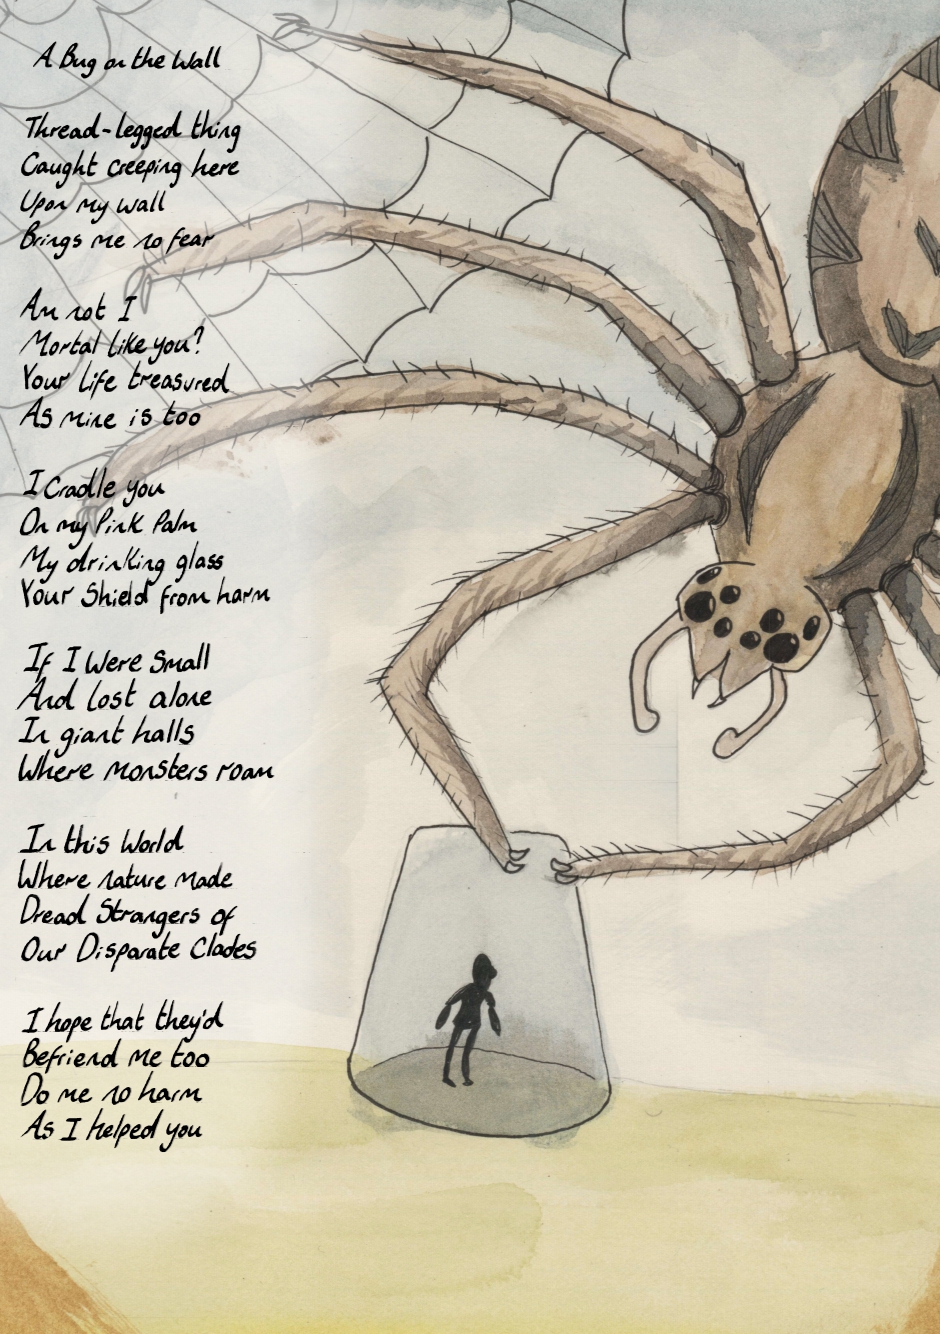 A Bug on the Wall
Thread-legged thing
Caught creeping here
Upon my wall
Brings me no fear
Am not I
Mortal like you?
Your life treasured
As mine is too
I Cradle you
On my Pink Palm
My drinking glass
Your Shield from harm
If I Were Small
And lost alone
In giant halls
Where Monsters roam
In this World
Where nature made
Dread Strangers of
Our Disparate Clades
I hope that they'd
Befriend me too
Do me no harm
As I helped you